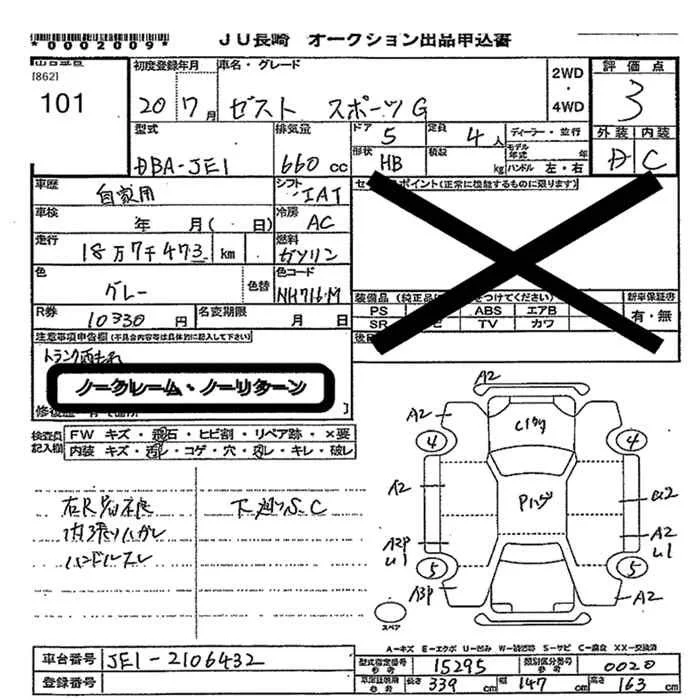 *0002009*
JU長崎 オークション出品申込書
[862]
101
初度登録年月
20 7月
車名・グレード
ゼスト スポーツG
2WD
・
4WD
評価点
3
外装 内装
C
型式
DBA-JE1
排気量
660 cc
ドア 5
定員 4人
ディーラー・並行
モデル年式 年
形状 HB
積数 kg
ハンドル 左・右
車歴
自家用
シフト
IAT
車検
年 月( 日)
冷房
AC
走行
18万7千473 km
燃料
ガソリン
色
グレー
色替
色コード
NH716M
ポイント(正常に機能するものに限ります)
装備品
PS
ABS エアB
SR
TV カワ
新車保証書
有・無
R券
10330円
名変期限
月 日
注意事項申告欄(不具合内容等は具体的に記入して下さい)
ノークレーム・ノーリターン
検査員
記入欄
FW キズ・飛石・ヒビ割・リペア跡・×要
内装 キズ・汚レ・コゲ・穴・スレ・キレ・破レ
内張りハガレ
ハンドルスレ
下廻りS.C
A2
A2
4
4
A2
A2
U1
A2P
U1
5
5
A3P
A2
スペア
A-キズ E-エクボ U-凹み W-補修跡 S-サビ C-腐食 XX-交換済
車台番号 JE1-2106432
登録番号
型式指定番号 15295
類別区分番号 0020
長さ 339 cm
幅 147 cm
高さ 163 cm